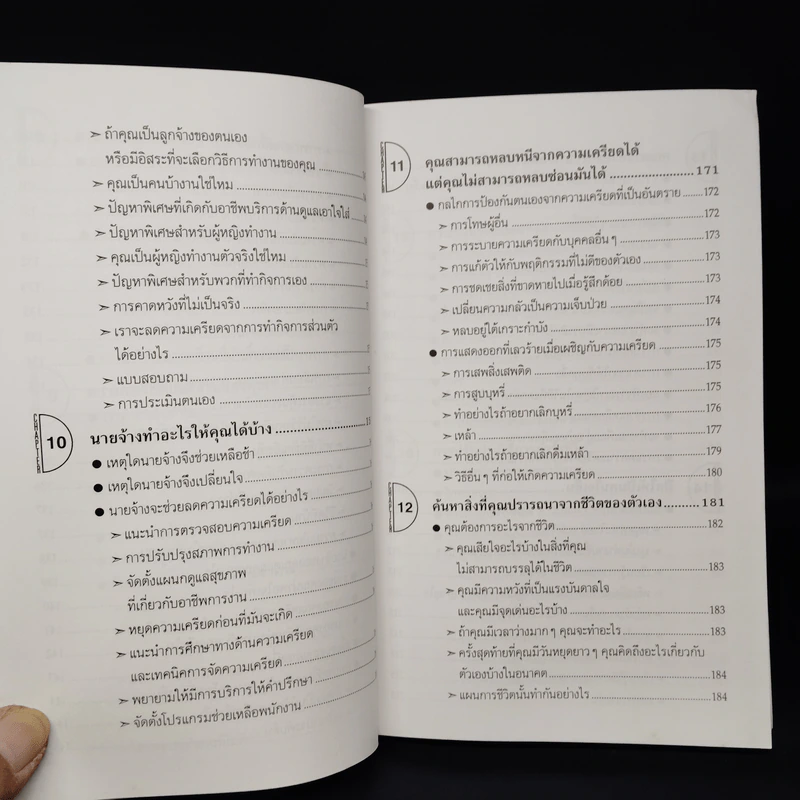 ➣ ถ้าคุณเป็นลูกจ้างของตนเอง
หรือมีอิสระที่จะเลือกวิธีการทำงานของคุณ
➣ คุณเป็นคนบ้างานใช่ไหม
➣ ปัญหาพิเศษที่เกิดกับอาชีพบริการด้านดูแลเอาใจใส่
➣ ปัญหาพิเศษสำหรับผู้หญิงทำงาน
➣ คุณเป็นผู้หญิงทำงานตัวจริงใช่ไหม
➣ ปัญหาพิเศษสำหรับพวกที่ทำกิจการเอง
➣ การคาดหวังที่ไม่เป็นจริง
➣ เราจะลดความเครียดจากการทำกิจการส่วนตัว
ได้อย่างไร
➣ แบบสอบถาม
➣ การประเมินตนเอง
CHAPTER 10 นายจ้างทำอะไรให้คุณได้บ้าง
● เหตุใดนายจ้างจึงช่วยเหลือช้า
● เหตุใดนายจ้างจึงเปลี่ยนใจ
● นายจ้างจะช่วยลดความเครียดได้อย่างไร
➣ แนะนำการตรวจสอบความเครียด
➣ การปรับปรุงสภาพการทำงาน
➣ จัดตั้งแผนกดูแลสุขภาพ
ที่เกี่ยวกับอาชีพการงาน
➣ หยุดความเครียดก่อนที่มันจะเกิด
➣ แนะนำการศึกษาทางด้านความเครียด
และเทคนิคการจัดความเครียด
➣ พยายามให้มีการบริการให้คำปรึกษา
➣ จัดตั้งโปรแกรมช่วยเหลือพนักงาน
CHAPTER 11 คุณสามารถหลบหนีจากความเครียดได้
แต่คุณไม่สามารถหลบซ่อนมันได้ 171
● กลไกการป้องกันตนเองจากความเครียดที่เป็นอันตราย 172
➣ การโทษผู้อื่น 172
➣ การระบายความเครียดกับบุคคลอื่นๆ 173
➣ การแก้ตัวให้กับพฤติกรรมที่ไม่ดีของตัวเอง 173
➣ การชดเชยสิ่งที่ขาดหายไปเมื่อรู้สึกด้อย 173
➣ เปลี่ยนความกลัวเป็นความเจ็บป่วย 174
➣ หลบอยู่ใต้เกราะกำบัง 174
● การแสดงออกที่เลวร้ายเมื่อเผชิญกับความเครียด 175
➣ การเสพสิ่งเสพติด 175
➣ การสูบบุหรี่ 175
➣ ทำอย่างไรถ้าอยากเลิกบุหรี่ 176
➣ เหล้า 177
➣ ทำอย่างไรถ้าอยากเลิกดื่มเหล้า 179
➣ วิธีอื่นๆ ที่ก่อให้เกิดความเครียด 180
CHAPTER 12 ค้นหาสิ่งที่คุณปรารถนาจากชีวิตของตัวเอง 181
● คุณต้องการอะไรจากชีวิต 182
➣ คุณเสียใจอะไรบ้างในสิ่งที่คุณ
ไม่สามารถบรรลุได้ในชีวิต 183
➣ คุณมีความหวังที่เป็นแรงบันดาลใจ
และคุณมีจุดเด่นอะไรบ้าง 183
➣ ถ้าคุณมีเวลาว่างมากๆ คุณจะทำอะไร 183
➣ ครั้งสุดท้ายที่คุณมีวันหยุดยาวๆ คุณคิดถึงอะไรเกี่ยวกับ
ตัวเองบ้างในอนาคต 184
➣ แผนการชีวิตนั้นทำกันอย่างไร 184